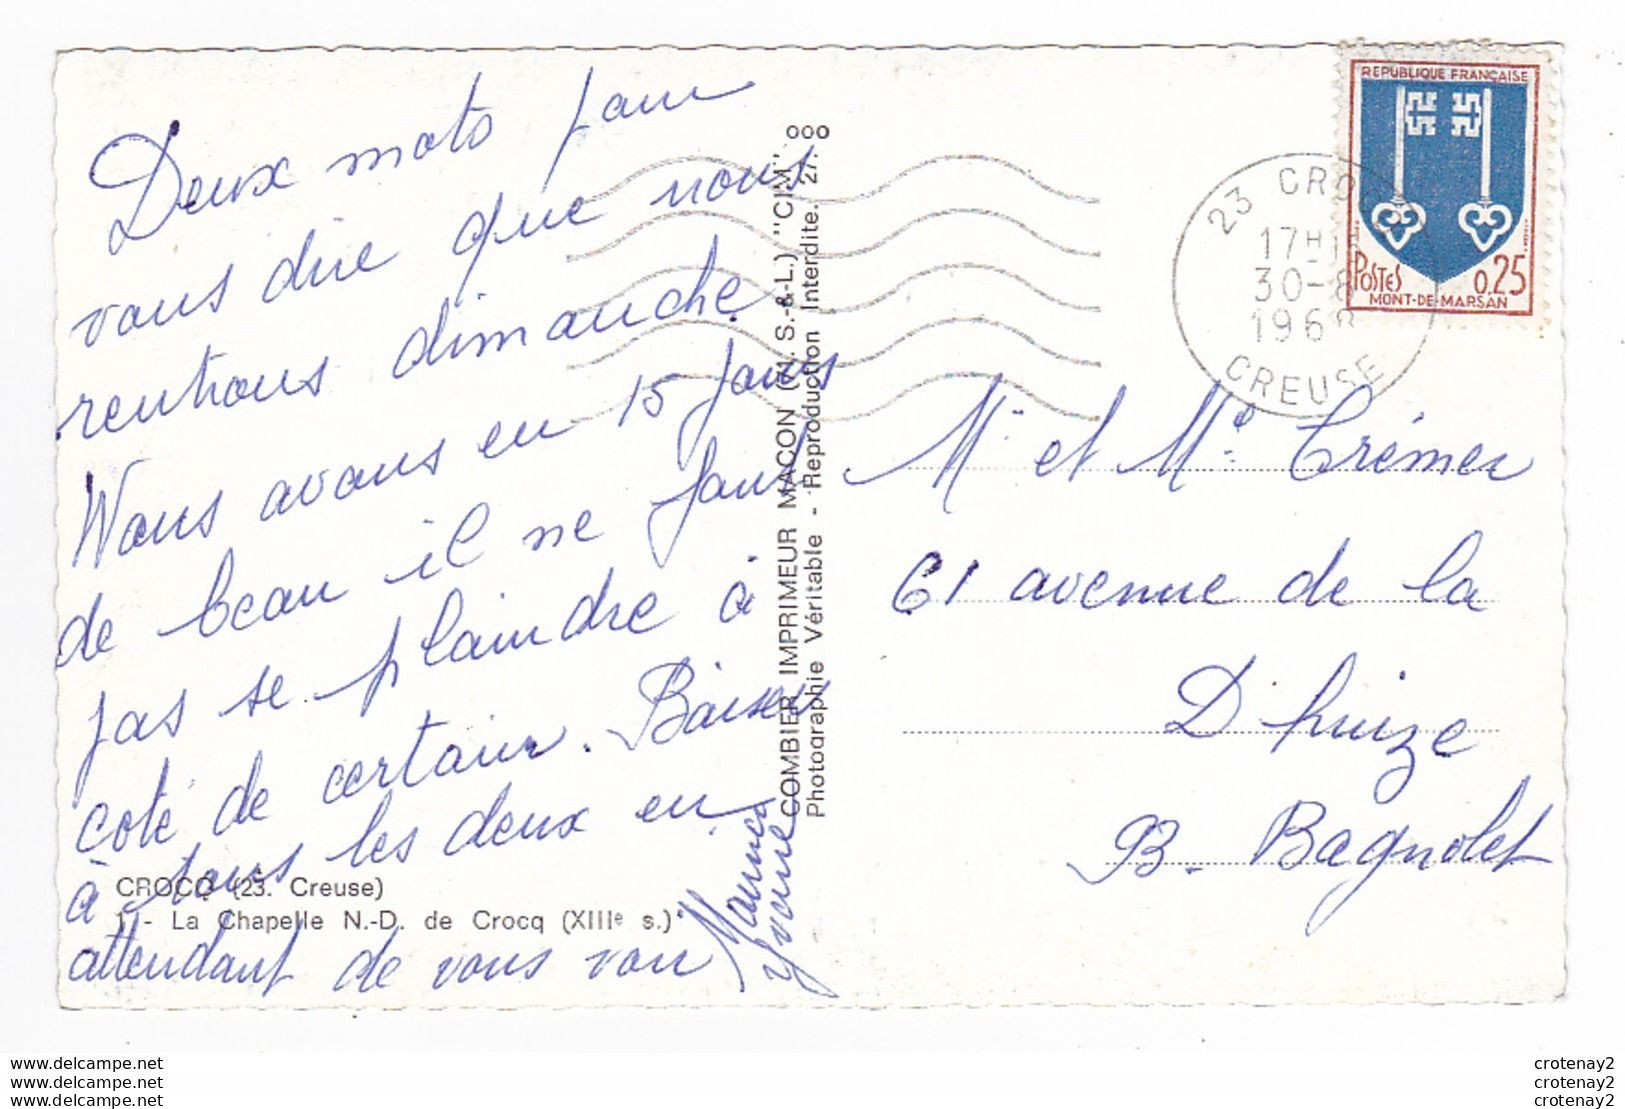 Deux mots pour
vous dire que nous
rentrons dimanche
Nous avons eu 15 jours
de beau il ne faut
pas se plaindre à
coté de certain. Baisers
à tous les deux en
attendant de vous voir
Maurice
Yvonne
CROCQ (23. Creuse)
1 - La Chapelle N.-D. de Crocq (XIIIe s.)
COMBIER IMPRIMEUR MACON (M. S.-&-L.) "CIM"
Photographie Véritable - Reproduction Interdite.
REPUBLIQUE FRANÇAISE
POSTES 0,25
MONT-DE-MARSAN
23 CROCQ
17H
30-8
1968
CREUSE
Mr et Me Crémer
61 avenue de la
Dhuize
B. Bagnolet
www.delcampe.net
www.delcampe.net
www.delcampe.net
crotenay2
crotenay2
crotenay2